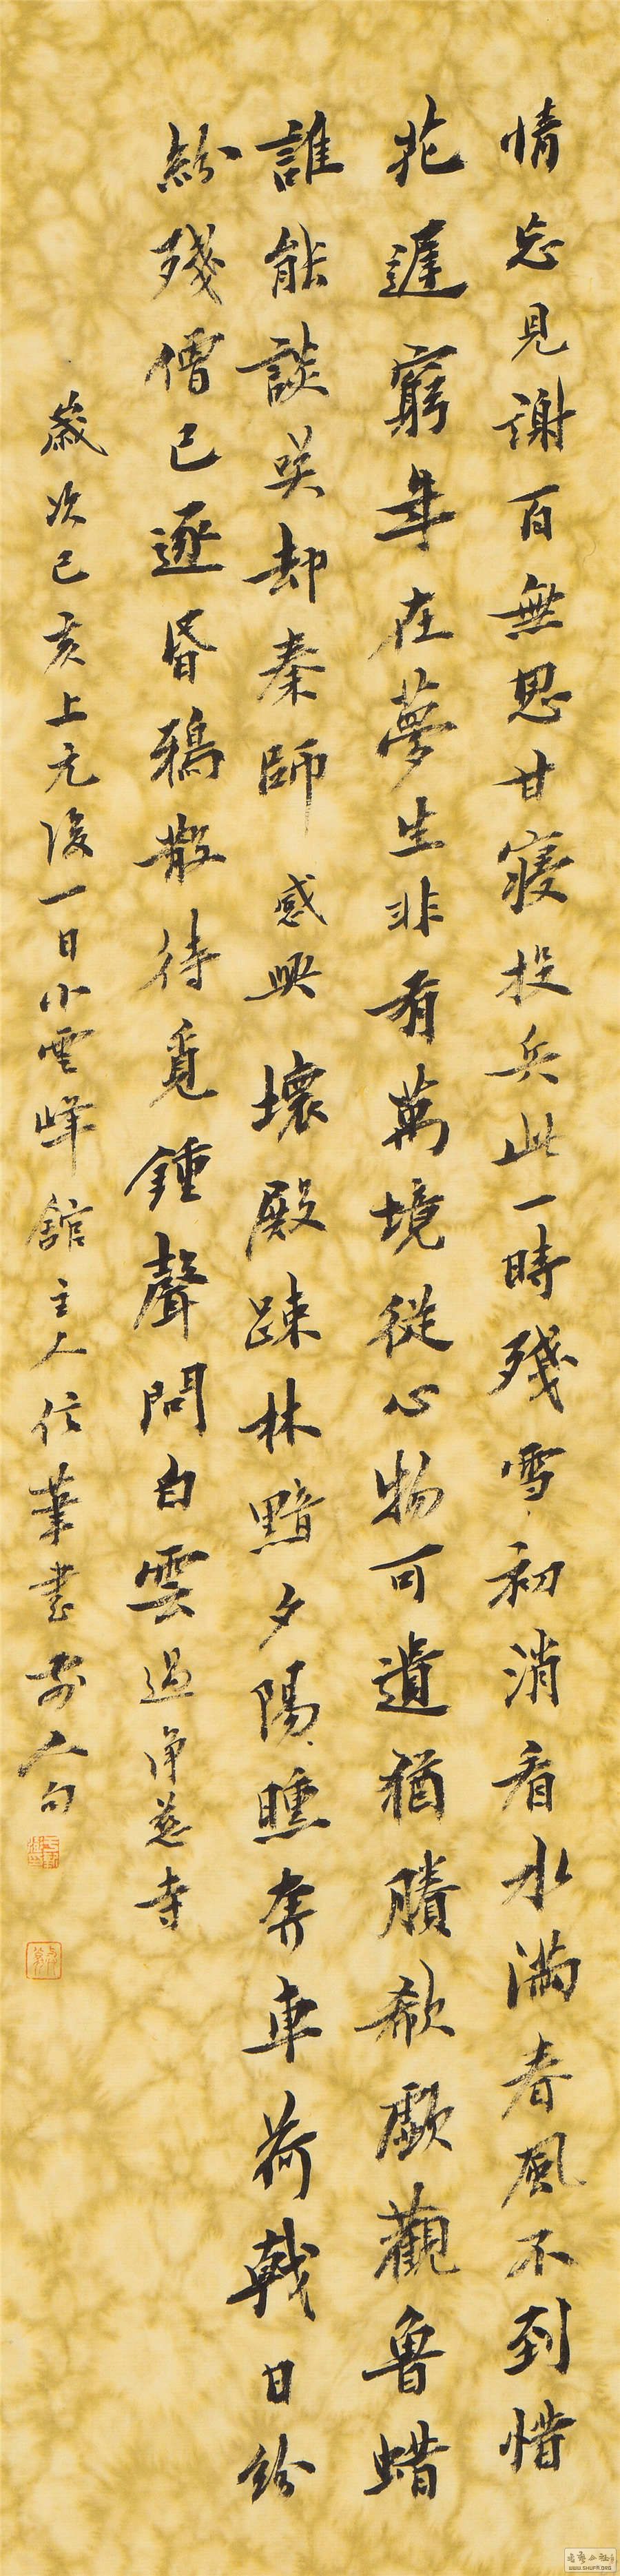 情忘見謝百無思甘寢投兵此一時殘雪初消看水滿春風不到惜
花遲窮年在夢生非有萬境從心物可遺猶賸欷歔觀魯蜡
誰能談笑却秦師 感興 壞殿踈林黯夕陽曛奔車荷戟日紛
紛殘僧已逐昏鴉散待覓鍾聲問白雲過淨慈寺
歲次己亥上元後一日小雲峰館主人信筆書前人句